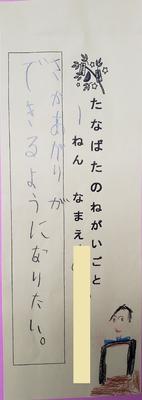 たなばたのねがいごと
一ねん なまえ
さかあがりが
できるようになりたい。